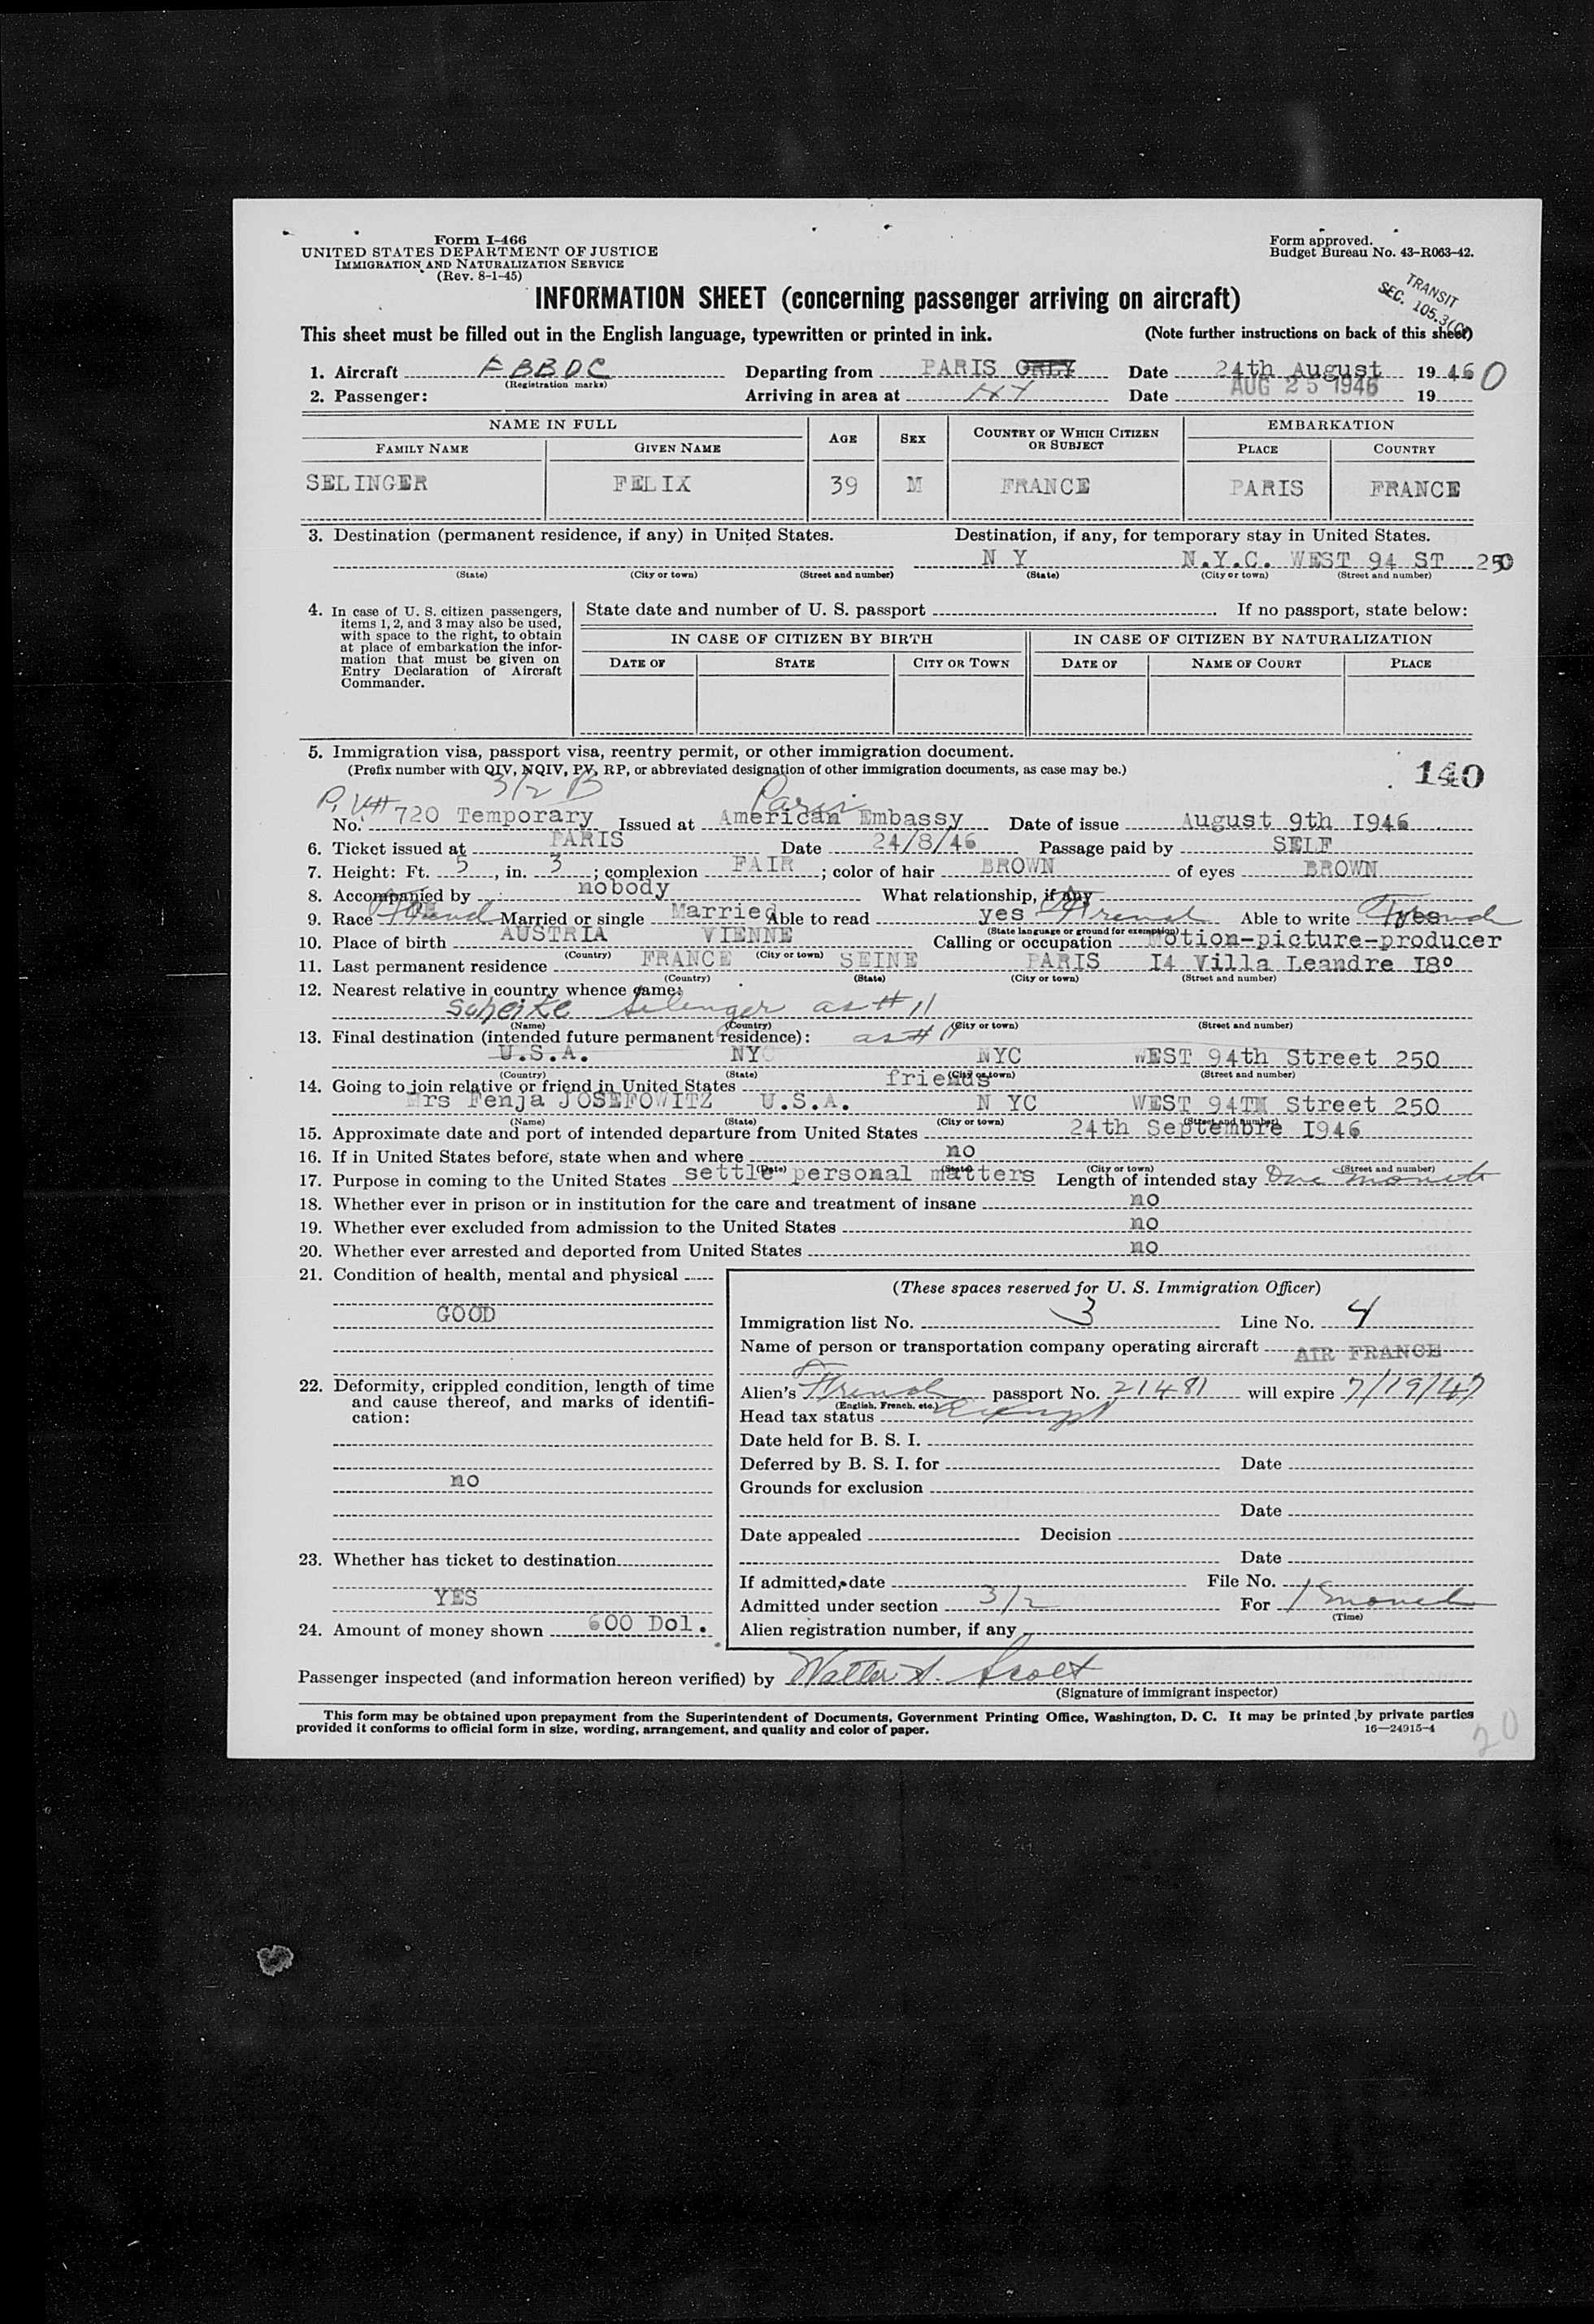 Form I-466
UNITED STATES DEPARTMENT OF JUSTICE
IMMIGRATION AND NATURALIZATION SERVICE
(Rev. 8-1-45)
Form approved.
Budget Bureau No. 43-R063-42.
TRANSIT
SEC. 105.3
INFORMATION SHEET (concerning passenger arriving on aircraft)
This sheet must be filled out in the English language, typewritten or printed in ink. (Note further instructions on back of this sheet)
1. Aircraft F BBDC Departing from PARIS ORLY Date 24th August 1946 0
(Registration marks)
2. Passenger: Arriving in area at NY Date AUG 25 1946 19
NAME IN FULL AGE SEX COUNTRY OF WHICH CITIZEN OR SUBJECT EMBARKATION
FAMILY NAME GIVEN NAME PLACE COUNTRY
SELINGER FELIX 39 M FRANCE PARIS FRANCE
3. Destination (permanent residence, if any) in United States. Destination, if any, for temporary stay in United States.
N Y N.Y.C. WEST 94 ST 250
(State) (City or town) (Street and number) (State) (City or town) (Street and number)
4. In case of U. S. citizen passengers, items 1, 2, and 3 may also be used, with space to the right, to obtain at place of embarkation the information that must be given on Entry Declaration of Aircraft Commander.
State date and number of U. S. passport If no passport, state below:
IN CASE OF CITIZEN BY BIRTH IN CASE OF CITIZEN BY NATURALIZATION
DATE OF STATE CITY OR TOWN DATE OF NAME OF COURT PLACE
5. Immigration visa, passport visa, reentry permit, or other immigration document.
(Prefix number with QIV, NQIV, PV, RP, or abbreviated designation of other immigration documents, as case may be.)
140
3/2 B Paris
P.V# No. 720 Temporary Issued at American Embassy Date of issue August 9th I946
6. Ticket issued at PARIS Date 24/8/46 Passage paid by SELF
7. Height: Ft. 5, in. 3; complexion FAIR; color of hair BROWN of eyes BROWN
8. Accompanied by nobody What relationship, if any
9. Race French Married or single Married Able to read yes French Able to write yes French
(State language or ground for exemption)
10. Place of birth AUSTRIA VIENNE Calling or occupation Motion-picture-producer
(Country) (City or town)
11. Last permanent residence FRANCE SEINE PARIS I4 Villa Leandre I8º
(Country) (State) (City or town) (Street and number)
12. Nearest relative in country whence came:
Selinger as # 11
(Name) (Country) (City or town) (Street and number)
13. Final destination (intended future permanent residence): as # 11
U.S.A. NYC NYC WEST 94th Street 250
(Country) (State) (City or town) (Street and number)
14. Going to join relative or friend in United States friends
Mrs Fenja JOSEFOWITZ U.S.A. N YC WEST 94TH Street 250
(Name) (State) (City or town) (Street and number)
15. Approximate date and port of intended departure from United States 24th Septembre I946
16. If in United States before, state when and where no
(Date) (State) (City or town) (Street and number)
17. Purpose in coming to the United States settle personal matters Length of intended stay One month
18. Whether ever in prison or in institution for the care and treatment of insane no
19. Whether ever excluded from admission to the United States no
20. Whether ever arrested and deported from United States no
21. Condition of health, mental and physical
GOOD
22. Deformity, crippled condition, length of time and cause thereof, and marks of identification:
no
23. Whether has ticket to destination
YES
24. Amount of money shown 600 Dol.
(These spaces reserved for U. S. Immigration Officer)
Immigration list No. 3 Line No. 4
Name of person or transportation company operating aircraft AIR FRANCE
Alien's French passport No. 21481 will expire 7/19/47
(English, French, etc.)
Head tax status Exempt
Date held for B. S. I.
Deferred by B. S. I. for Date
Grounds for exclusion
Date
Date appealed Decision
Date
If admitted, date File No.
Admitted under section 3/2 For 1 month
(Time)
Alien registration number, if any
Passenger inspected (and information hereon verified) by Walter S. Scott
(Signature of immigrant inspector)
This form may be obtained upon prepayment from the Superintendent of Documents, Government Printing Office, Washington, D. C. It may be printed by private parties
provided it conforms to official form in size, wording, arrangement, and quality and color of paper. 16—24915-4
20